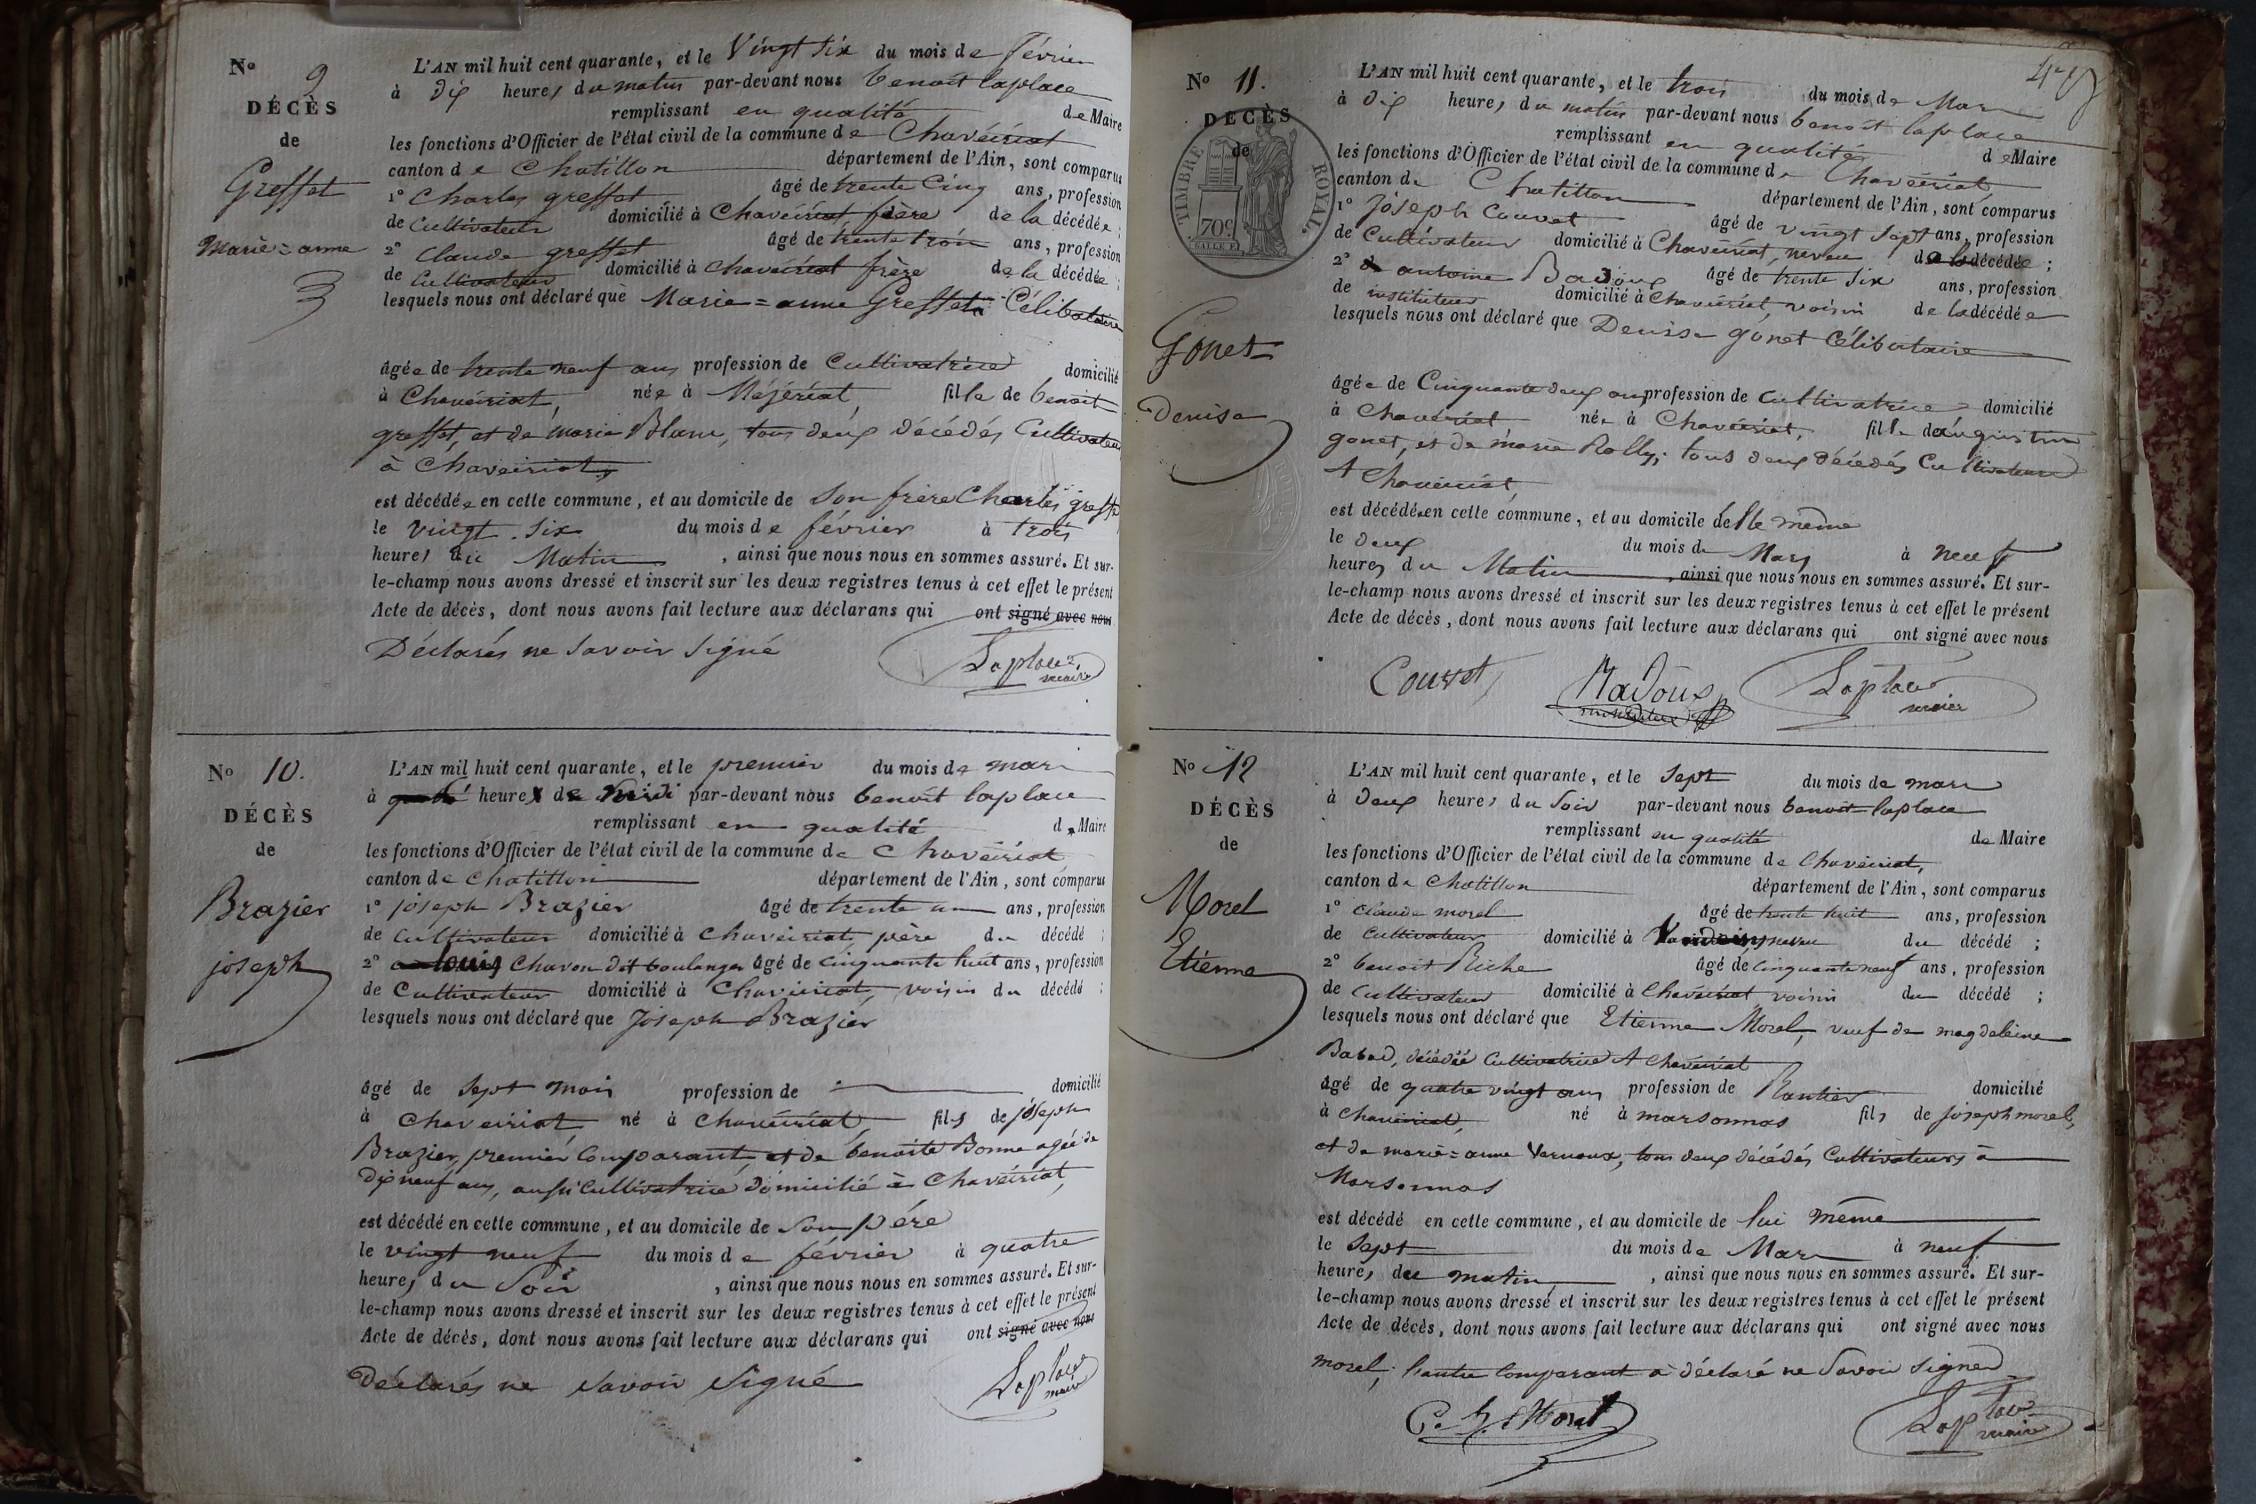 No 9
DÉCÈS
de
Greffet
Marie=anne
L'AN mil huit cent quarante, et le Vingt six du mois de février
à dix heures du matin par-devant nous benoit laplace
remplissant en qualité de Maire
les fonctions d'Officier de l'état civil de la commune de Chavéiriat
canton de Chatillon département de l'Ain, sont comparus
1° Charles greffet âgé de trente Cinq ans, profession
de Cultivateur domicilié à Chaveiriat, frère de la décédée ;
2° Claude greffet âgé de trente trois ans, profession
de Cultivateur domicilié à Chaveiriat frère de la décédée ;
lesquels nous ont déclaré que Marie=anne Greffet Célibataire
âgée de trente neuf ans profession de Cultivatrice domicilié
à Chaveiriat, née à Mézériat, fille de benoit
greffet, et de marie Blanc, tous deux décédés Cultivateurs
à Chaveiriat,
est décédée en cette commune, et au domicile de son frère Charles greffet
le vingt six du mois de février à trois
heures du Matin , ainsi que nous nous en sommes assuré. Et sur-
le-champ nous avons dressé et inscrit sur les deux registres tenus à cet effet le présent
Acte de décès, dont nous avons fait lecture aux déclarans qui ont signé avec nous
Déclarés ne savoir signé
Laplace, maire
No 10.
DÉCÈS
de
Brazier
joseph
L'AN mil huit cent quarante, et le premier du mois de mars
à heure de Midi par-devant nous benoit laplace
remplissant en qualité de Maire
les fonctions d'Officier de l'état civil de la commune de Chavéiriat
canton de Chatillon département de l'Ain, sont comparus
1° joseph Brazier âgé de trente un ans, profession
de Cultivateur domicilié à Chaveiriat, père du décédé ;
2° louis Chavon dit boulanger âgé de cinquante huit ans, profession
de Cultivateur domicilié à Chaveiriat, voisin du décédé ;
lesquels nous ont déclaré que Joseph Brazier
âgé de sept mois profession de domicilié
à Chaveiriat né à Chaveiriat, fils de joseph
Brazier, premier Comparant, et de benoite Bonne agée de
dix neuf ans, aussi Cultivatrice domicilié à Chavéiriat,
est décédé en cette commune, et au domicile de son père
le vingt neuf du mois de février à quatre
heures du Soir , ainsi que nous nous en sommes assuré. Et sur-
le-champ nous avons dressé et inscrit sur les deux registres tenus à cet effet le présent
Acte de décès, dont nous avons fait lecture aux déclarans qui ont signé avec nous
Déclarés ne savoir signé
Laplace maire
No 11.
DÉCÈS
de
TIMBRE ROYAL.
70c
Gonet
Denise
L'AN mil huit cent quarante, et le trois du mois de Mars
à dix heures du matin par-devant nous benoit laplace
remplissant en qualité de Maire
les fonctions d'Officier de l'état civil de la commune de Chavéiriat
canton de Chatillon département de l'Ain, sont comparus
1° joseph Couvet âgé de vingt sept ans, profession
de Cultivateur domicilié à Chaveiriat, neveu de la décédée ;
2° antoine Badoux âgé de trente six ans, profession
de instituteur domicilié à Chaveiriat, voisin de la décédée
lesquels nous ont déclaré que Denise gonet Célibataire
âgée de Cinquante deux ans profession de cultivatrice domicilié
à Chaveriat née à Chaveiriat, fille d'augustin
gonet, et de marie Rolly, tous deux décédés Cultivateurs
A Chaveiriat,
est décédée en cette commune, et au domicile d'elle même
le deux du mois de Mars à neuf
heures du Matin , ainsi que nous nous en sommes assuré. Et sur-
le-champ nous avons dressé et inscrit sur les deux registres tenus à cet effet le présent
Acte de décès, dont nous avons fait lecture aux déclarans qui ont signé avec nous
Couvet Badoux Laplace
maire
No 12
DÉCÈS
de
Morel
Etienne
L'AN mil huit cent quarante, et le sept du mois de mars
à deux heures du Soir par-devant nous benoit laplace
remplissant en qualité de Maire
les fonctions d'Officier de l'état civil de la commune de Chaveiriat,
canton de Chatillon département de l'Ain, sont comparus
1° Claude morel âgé de trente huit ans, profession
de Cultivateur domicilié à Vandeins, neveu du décédé ;
2° benoit Riche âgé de cinquante neuf ans, profession
de Cultivateur domicilié à Chaveiriat voisin du décédé ;
lesquels nous ont déclaré que Etienne Morel, veuf de magdeleine
Babad, décédée Cultivatrice A Chaveiriat
âgé de quatre vingt ans profession de Rantier domicilié
à Chaveiriat, né à marsonnas fils de joseph morel,
et de marie=anne Vernoux, tous deux décédés Cultivateurs à
Marsonnas
est décédé en cette commune, et au domicile de lui même
le sept du mois de Mars à neuf
heures du matin , ainsi que nous nous en sommes assuré. Et sur-
le-champ nous avons dressé et inscrit sur les deux registres tenus à cet effet le présent
Acte de décès, dont nous avons fait lecture aux déclarans qui ont signé avec nous
morel, l'autre Comparant a déclaré ne savoir signer
Morel Laplace
maire